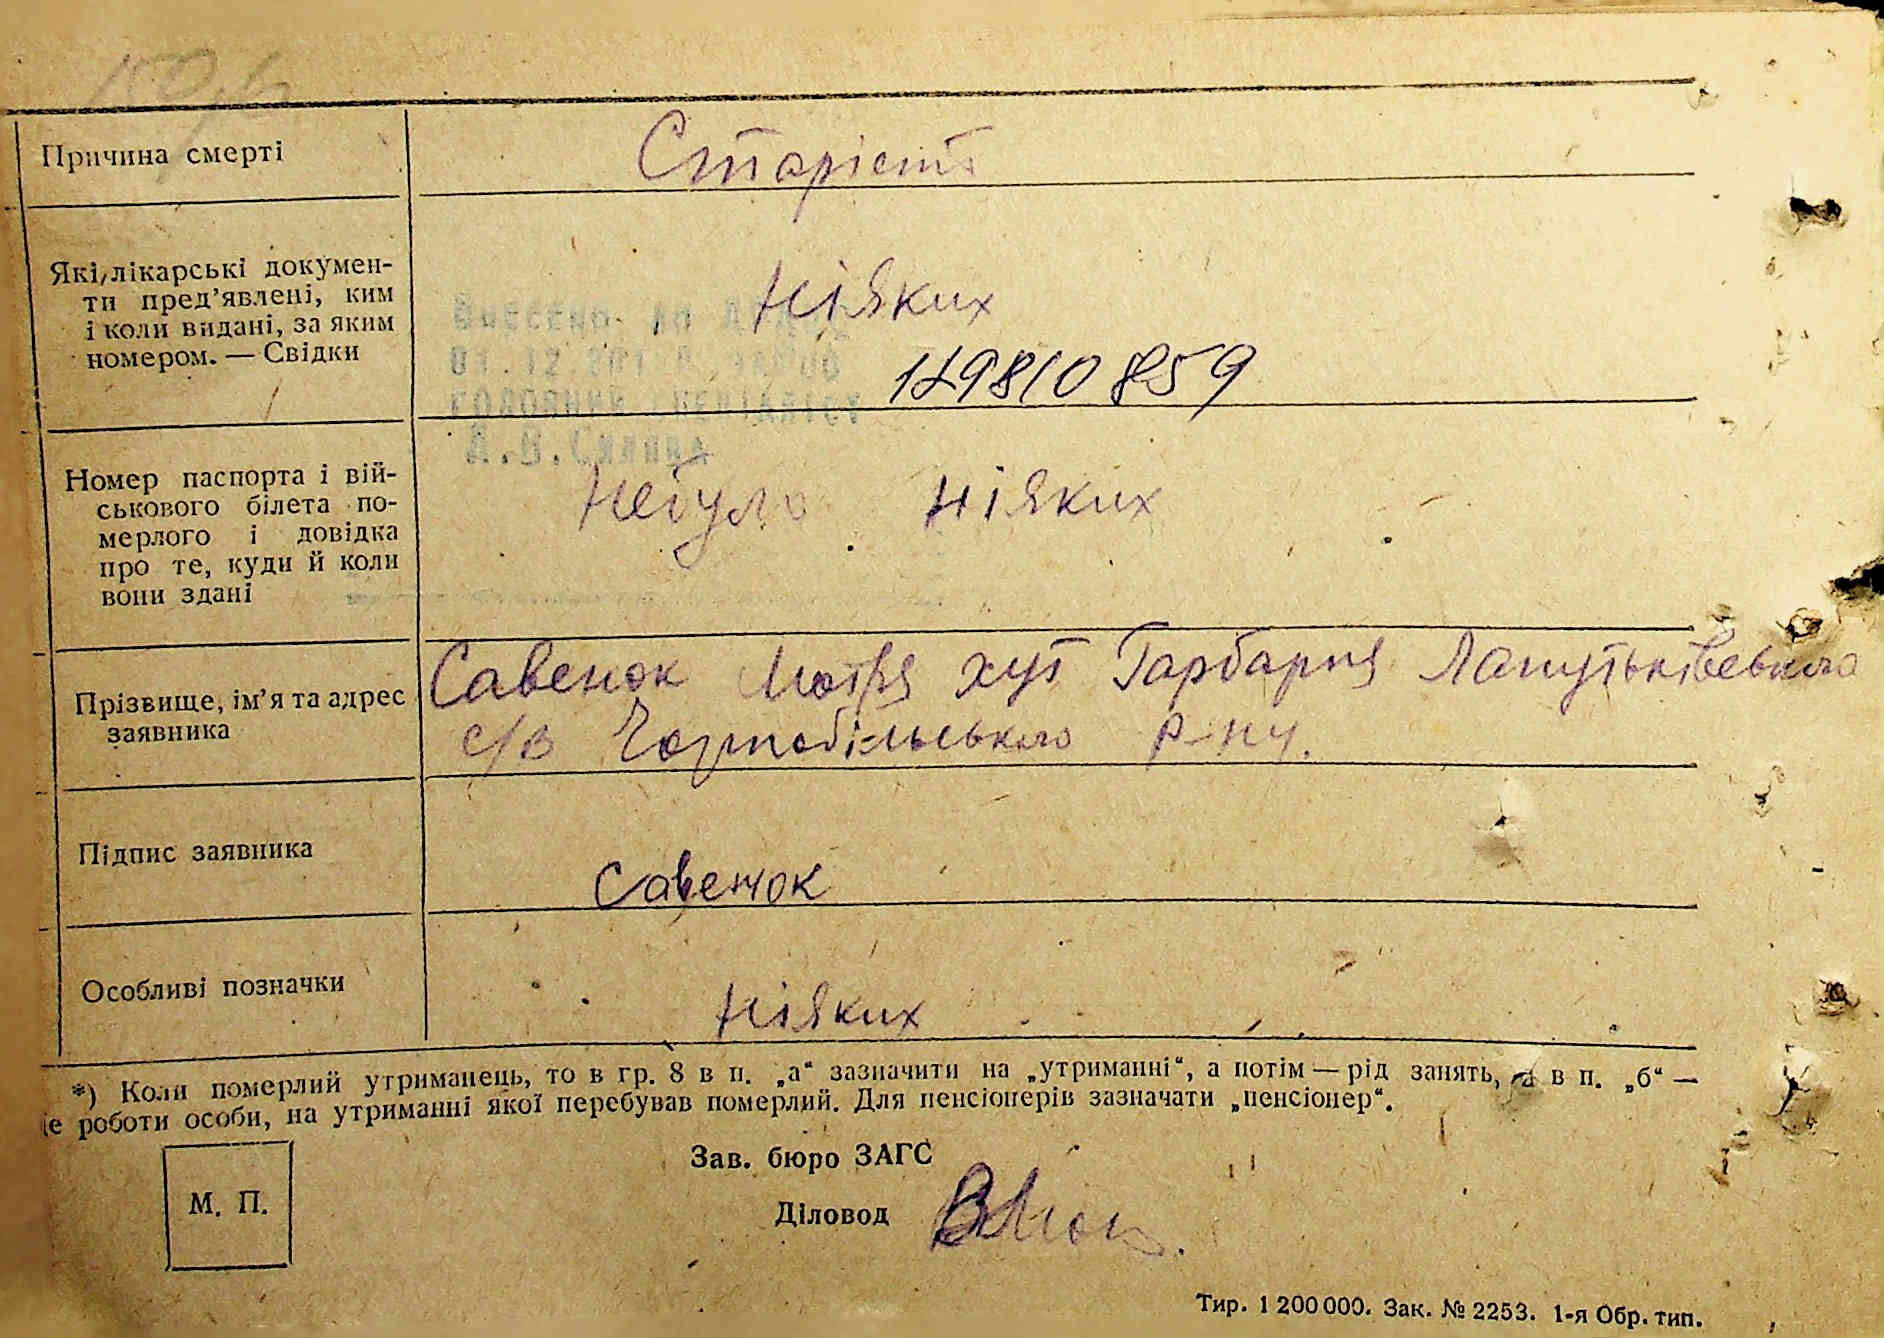 Причина смерті
Старість
Які лікарські документи
ти пред’явлені, ким
і коли видані, за яким
номером. — Свідки
Ніяких
Внесено до
01.12.201
головний спеціаліст
859
Номер паспорта і вій-
ськового білета по-
мерлого і довідка
про те, куди й коли
вони здані
Небуло Ніяких
Прізвище, ім’я та адрес
заявника
Савенок Мотря хут Гарбарня
с/в Чорнобільського р-ну.
Підпис заявника
Савенок
Особливі позначки
Ніяких
*) Коли померлий утриманець, то в гр. 8 в п. „а“ зазначити на „утриманні“, а потім — рід занять, а в п. „б“ —
це роботи особи, на утриманні якої перебував померлий. Для пенсіонерів зазначати „пенсіонер“.
Зав. бюро ЗАГС
М. П.
Діловод
Тир. 1 200 000. Зак. № 2253. 1-я Обр. тип.